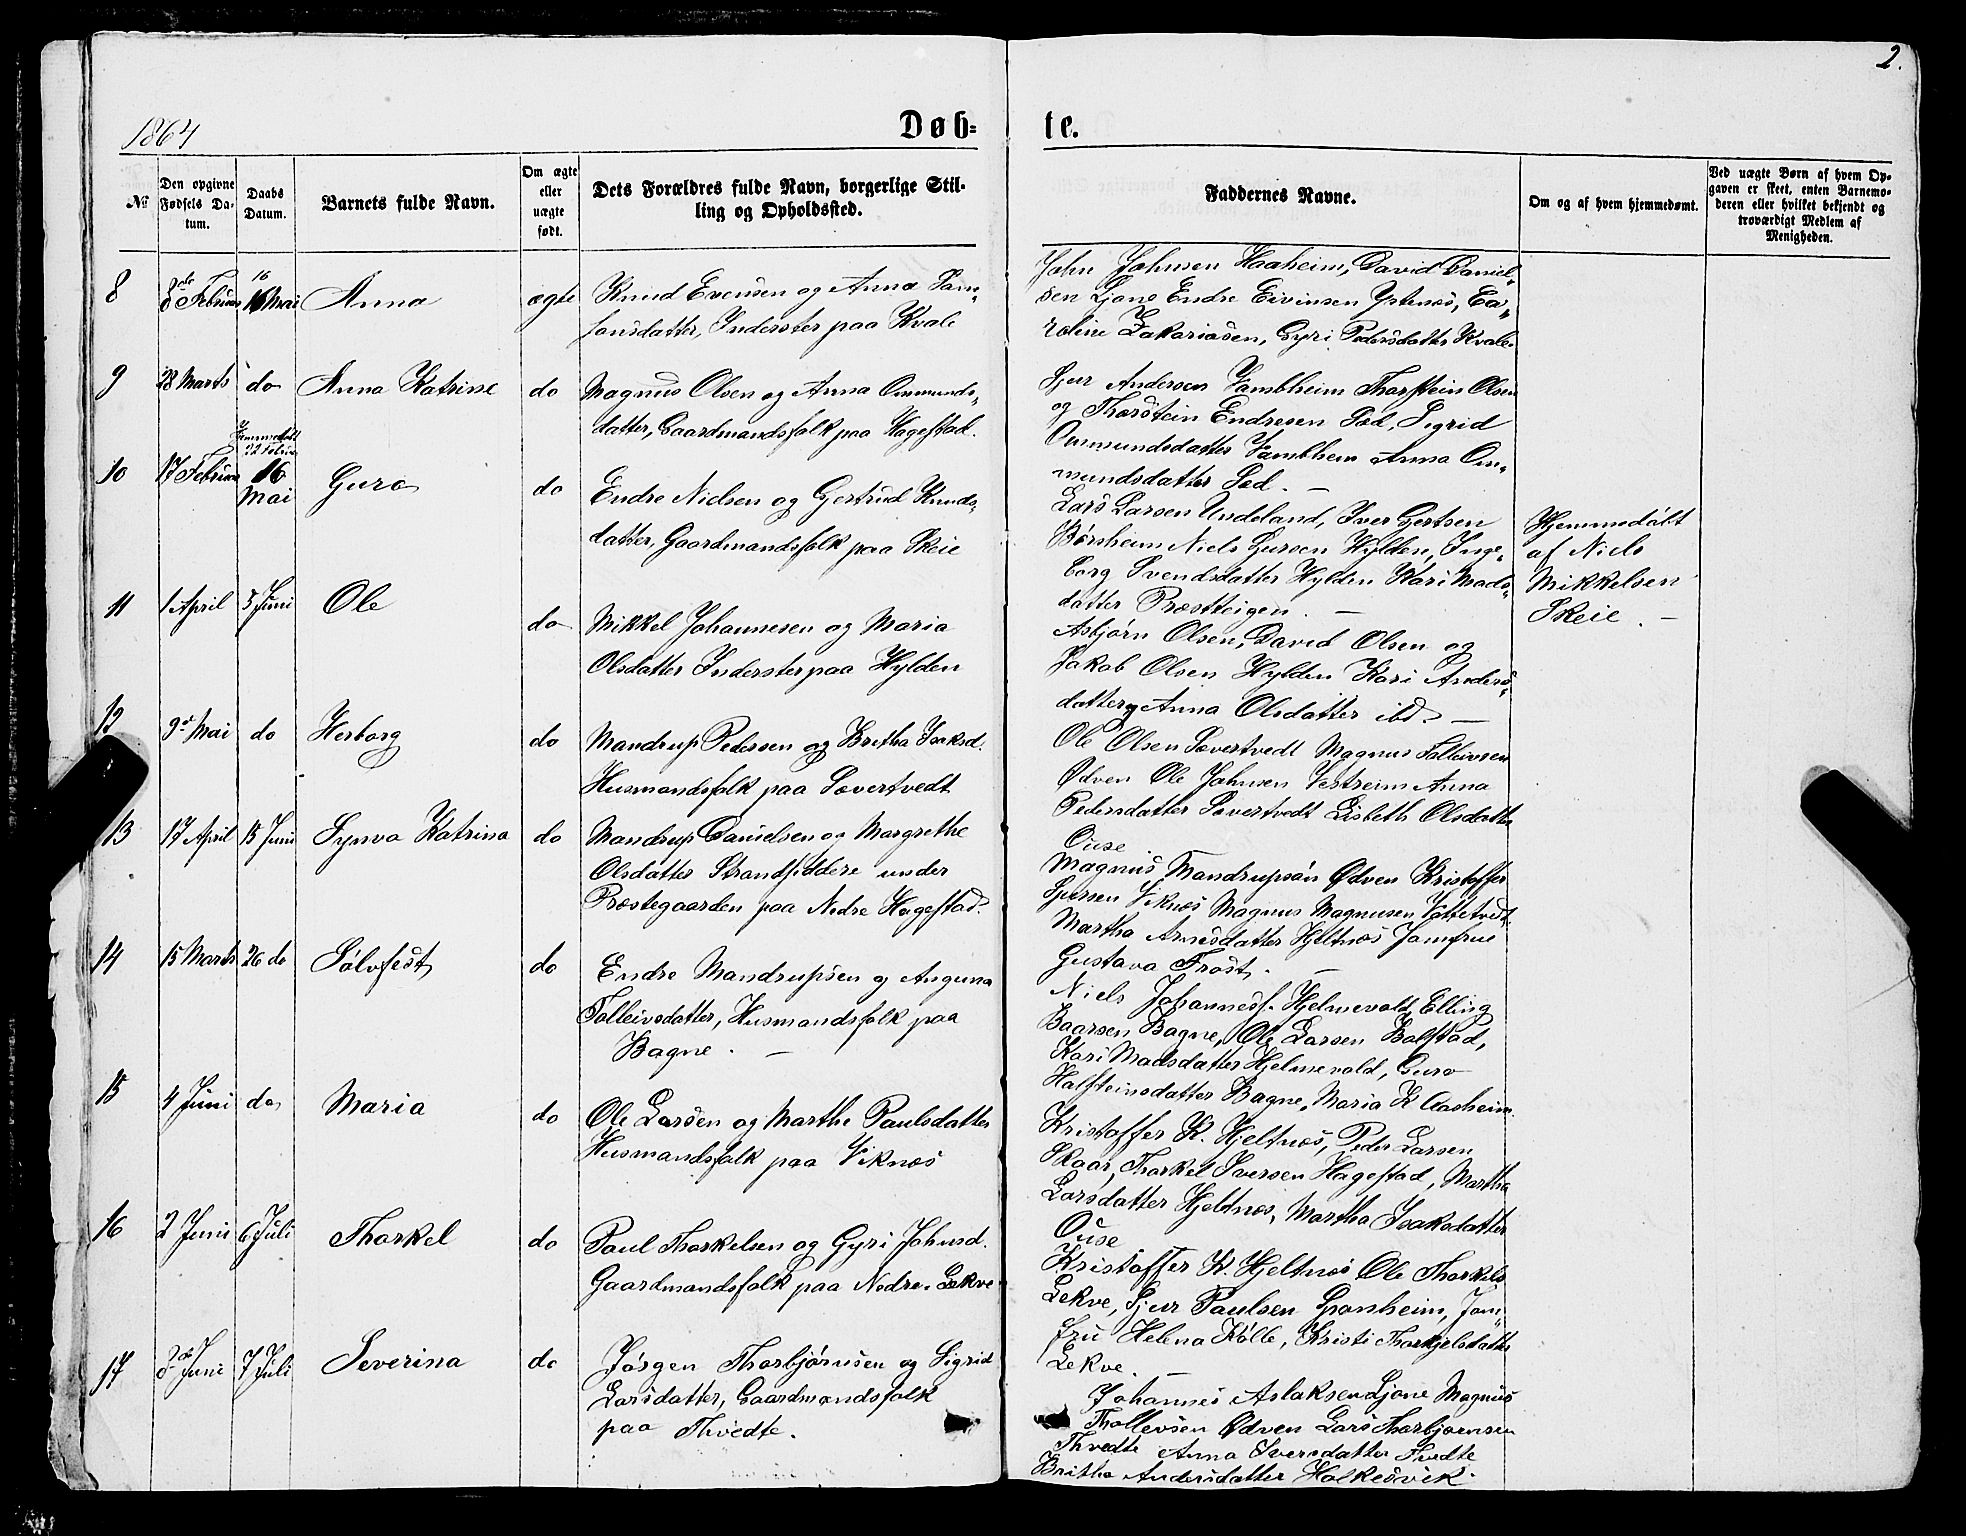 2.
1864
Døb= te.
№
Den opgivne Fødsels Datum.
Daabs Datum.
Barnets fulde Navn.
Om ægte eller uægte født.
Dets Forældres fulde Navn, borgerlige Stilling og Opholdssted.
Faddernes Navne.
Om og af hvem hjemmedømt.
Ved uægte Børn af hvem Opgaven er skeet, enten Barnemoderen eller hvilket bekjendt og troværdigt Medlem af Menigheden.
8 8de Februar 16 Mai Anna ægte
Knud Evensen og Anna Sam„
sonsdatter, Inderster paa Kvale
John Johnsen Haaheim, David Daniel„
sen Ljone Endre Eivinsen Ystenæs, Ca„
roline Zakariasen, Gyri Pedersdatter Kvale.
9 28 Marts do Anna Katrine do
Magnus Olsen og Anna Ommunds„
datter, Gaardmandsfolk paa Hagestad.
Sjur Andersen Vambheim Thorstein Olsen
og Thorstein Endresen Sæd, Sigrid
Ommundsdatter Vambheim Anna Om„
mundsdatter Sæd. —
10 17 Februar Hjemmedøbt 16 Mai Guro do
Endre Nielsen og Gjertrud Knuds„
datter, Gaardmandsfolk paa Skeie
Lars Larsen Undeland, Iver Gjertsen
Børsheim Niels Larsen Hylden, Inge„
borg Svendsdatter Hylden Kari Mads„
datter Præstteigen. —
Hjemmedøbt
af Niels
Mikkelsen
Skeie. —
11 1 April 5 Juni Ole do
Mikkel Johannesen og Maria
Olsdatter Inderster paa Hylden
Asbjørn Olsen, David Olsen og
Jakob Olsen Hylden Kari Anders„
datter og Anna Olsdatter ibd. —
12 9de Mai do Herborg do
Mandrup Pedersen og Britha Isaksd.
Husmandsfolk paa Sævertvedt
Ole Olsen Sævertvedt Magnus Tolleivsen
Ødven Ole Johnsen Vestreim Anna
Pedersdatter Sævertvedt Lisbeth Olsdatter
Ouse
13 17 April 15 Juni Synva Katrina do
Mandrup Danielsen og Margrethe
Olsdatter Strandsiddere under
Præstegaarden paa Nedre Hagestad.
Magnus Mandrupsøn Ødven Kristoffer
Sjursen Viknæs Magnus Magnusen Vattetvedt
Martha Arnesdatter Hjeltnæs Jomfrue
Gustava Frost. —
14 15 Marts 26 do Sølvfest do
Endre Mandrupsen og Anguna
Tolleivsdatter, Husmandsfolk paa
Bagne. —
Niels Johannesf. Hjelmevold, Elling
Baarsen Bagne, Ole Larsen Bolstad,
Kari Madsdatter Hjelmevold, Guro
Halfteinsdatter Bagne, Maria K Aasheim.
15 4 Juni do Maria do
Ole Larsen og Marthe Paulsdatter
Husmandsfolk paa Viknæs
Kristoffer K. Hjeltnæs, Peder Larsen
Skaar, Thorkel Iversen Hagestad, Martha
Larsdatter Hjeltnæs, Martha Isaksdatter
Ouse
16 2 Juni 6 Juli Thorkel do
Paul Thorkelsen og Gyri Johnsd.
Gaardmandsfolk paa Nedre Lekve
Kristoffer K. Hjeltnæs Ole Thorkels
Lekve, Sjur Paulsen Spanheim, Jom„
fru Helena Kølle, Kristi Thorkjelsdatter
Lekve
17 8de Juni 7 Juli Severina do
Jørgen Thorbjørnsen og Sigrid
Larsdatter, Gaardmandsfolk
paa Thvedte.
Johannes Aslaksen Ljone Magnus
Thollevsen Ødven Lars Thorbjørnsen
Thvedte Anna Iversdatter Tvedte
Britha Andersdatter Holkesvik.